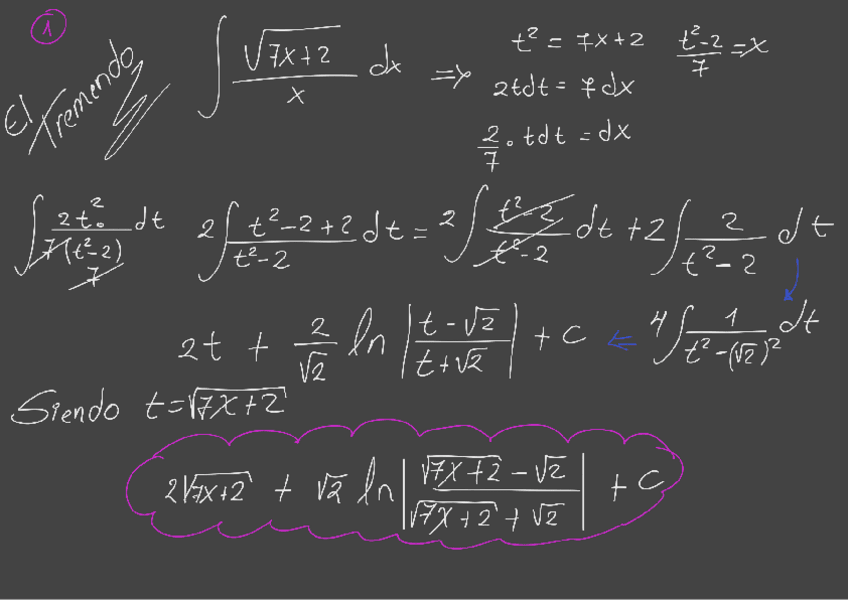 1
El Tremendo
∫ √(7x+2) / x dx ⇒ t² = 7x+2 (t²-2)/7 = x
2tdt = 7dx
2/7 · tdt = dx
∫ 2t² / (7(t²-2)/7) dt 2∫ (t²-2+2)/(t²-2) dt = 2∫ (t²-2)/(t²-2) dt + 2∫ 2/(t²-2) dt
2t + 2/√2 ln |(t-√2)/(t+√2)| + C ⇐ 4∫ 1/(t²-(√2)²) dt
Siendo t=√(7x+2)
2√(7x+2) + √2 ln |(√(7x+2) - √2)/(√(7x+2) + √2)| + C